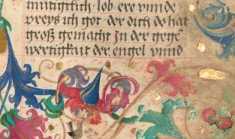 mitigtlich · lob ere vnnde
preys ich got der dich do hat
groß gemacht zu der gege
wertigkait der engel vnnd